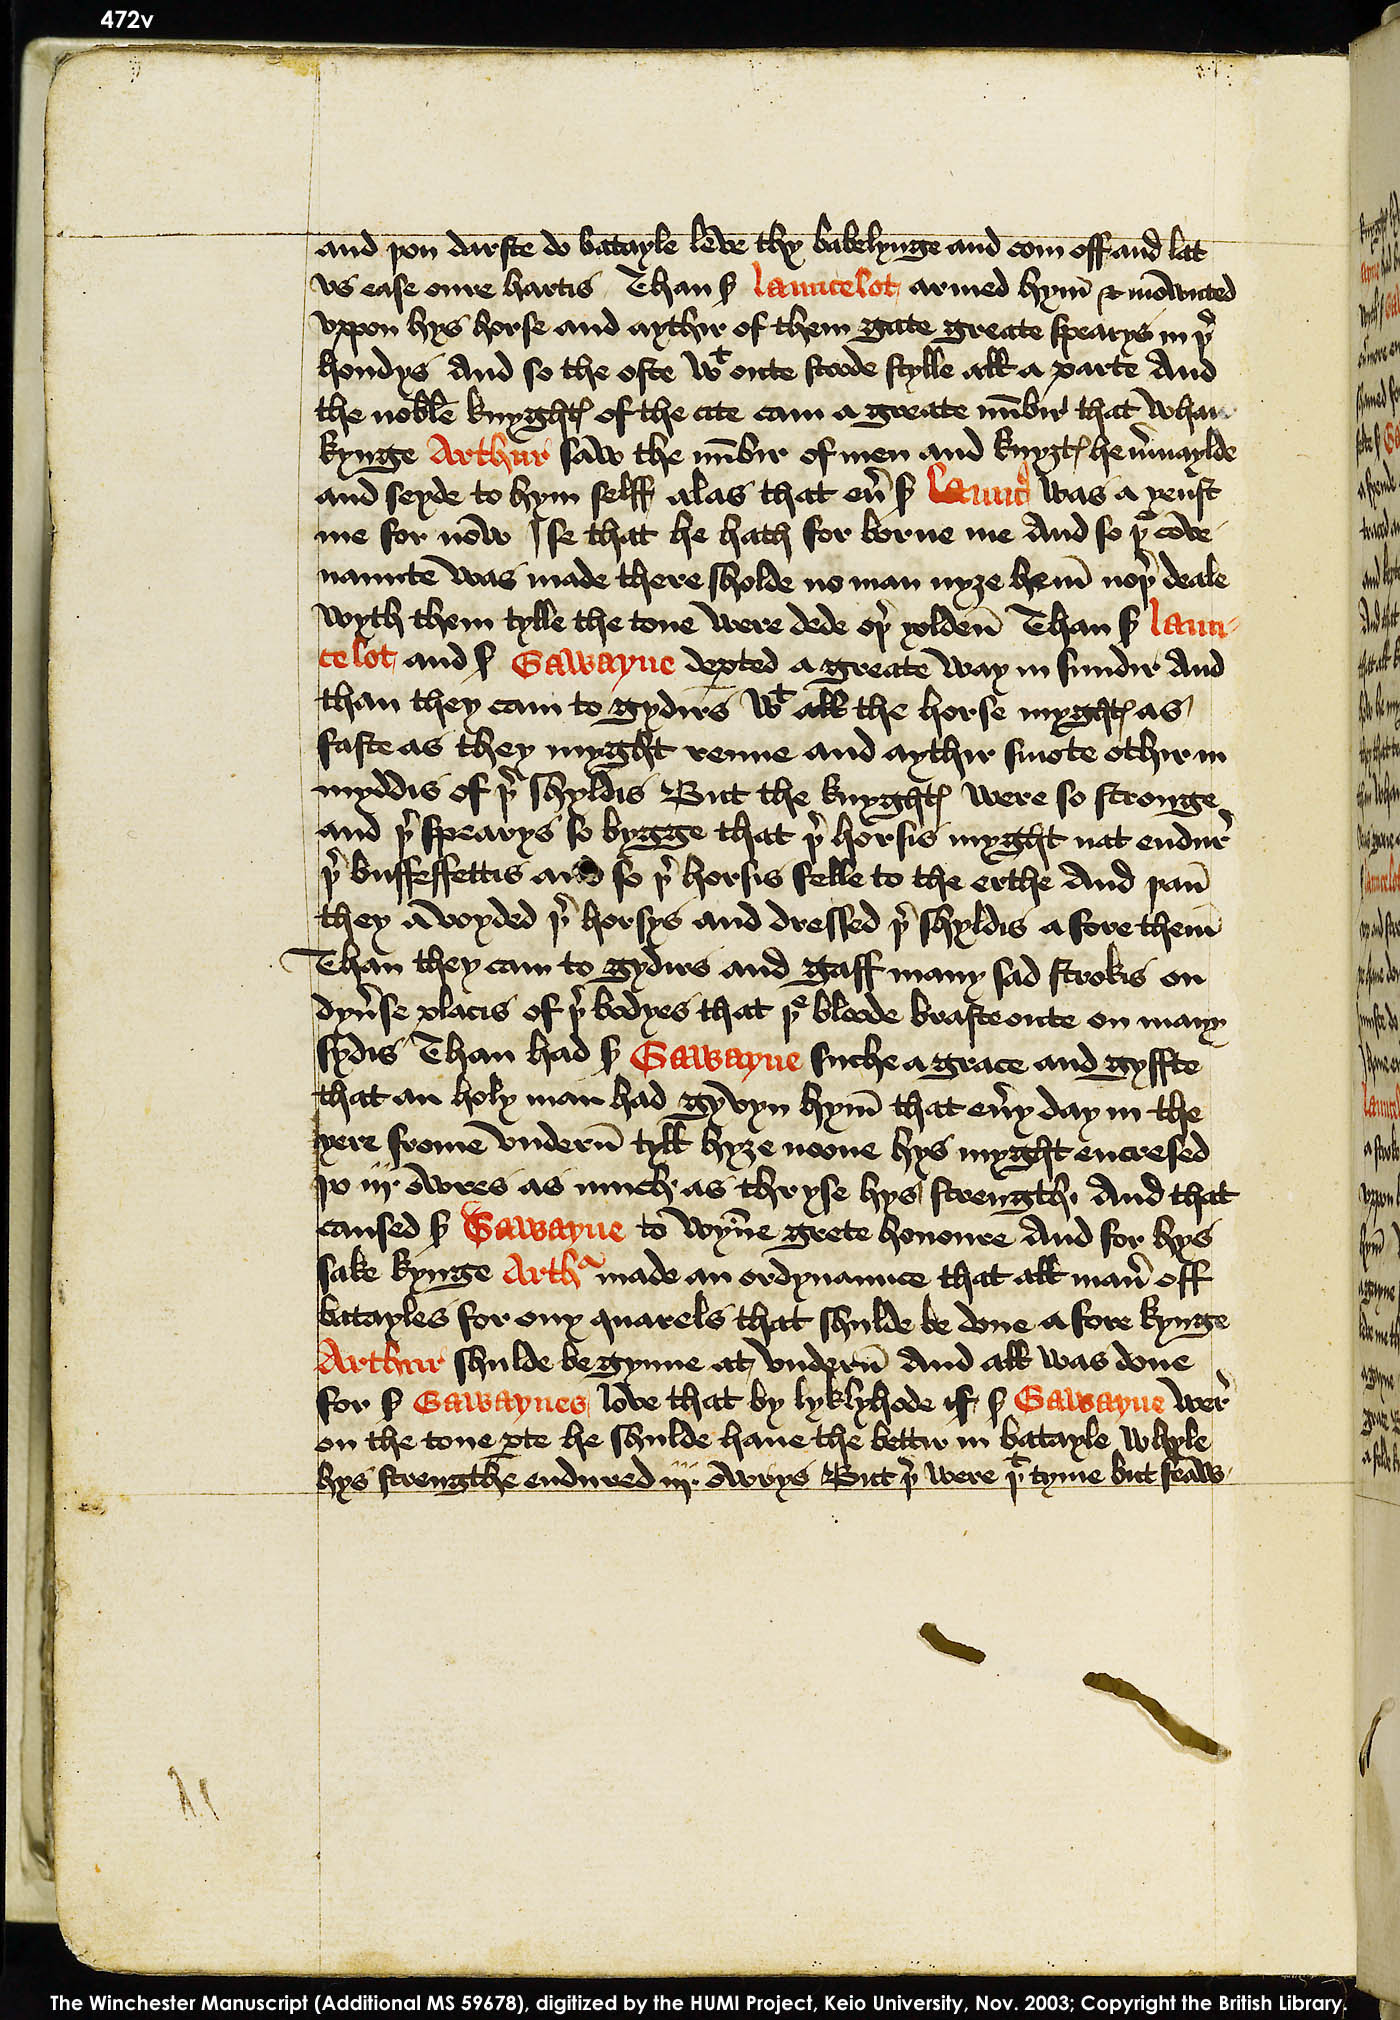 472v
and þou darste do batayle leve thy babelynge and com off and lat
vs ease oure hartis Than ẛ Launcelot armed hym̄ & mowнted
vppon hys horse and aythir of them gate greate spearys in þr̉
hondys And so the oste wt oute stoode stylle all a parte And
the noble knyghtꝭ of the cite cam a greate nūbir that whan
kynge Arthur saw the nūbir of men and knyȝtꝭ he m̉vaylde
and seyde to hym selff alas that eủ ẛ Launc̉ was a yenst
me for now I se that he hath for borne me And so þe cove
naunte was made there sholde no man nyȝe hem̄ noþ̉ deale
wyth them tylle the tone were dede oþ̉ yolden̄ Than ẛ Laun-
celot and ẛ Gawayne deꝑted a greate way in sundir And
than they cam to gydirs wt all the horse myghtꝭ as
faste as they myght renne and aythir smote othir in
myddis of þr̉ shyldis But the knyghtꝭ were so stronge
and þr̉ spearys so bygge that þr̉ horsis myght nat endur̉
þr̉ buffeffettis and so þr̉ horsis felle to the erthe And þan̄
they avoyded þr̉ horsys and dressed þr̉ shyldis a fore them̄
Than they cam to gydirs and gaff many sad strokis on
dyủse placis of þr̉ bodyes that þe bloode braste oute on many
sydis Than had ẛ Gawayne suche a grace and gyffte
that an holy man had gyvyn hym̄ that eủy day in the
yere frome vndern̄ tyll hyȝe noone hys myght encresed
þo iij owres as much as thryse hys strength And that
caused ẛ Gawayne to wyn̄e grete honoure And for hys
sake kynge Artha made an ordynaunce that all man̉ off
batayles for ony quarels that shulde be done a fore kynge
Arthur shulde be gynne at vndern̄ And all was done
for ẛ Gawaynes love that by lyklyhode if ẛ Gawayne wer̉
on the tone ꝑte he shulde haue the bettir in batayle whyle
hys strengthe endured iij owrys But þr̉ were þt tyme but feaw
The Winchester Manuscript (Additional MS 59678), digitized by the HUMI Project, Keio University, Nov. 2003; Copyright the British Library.